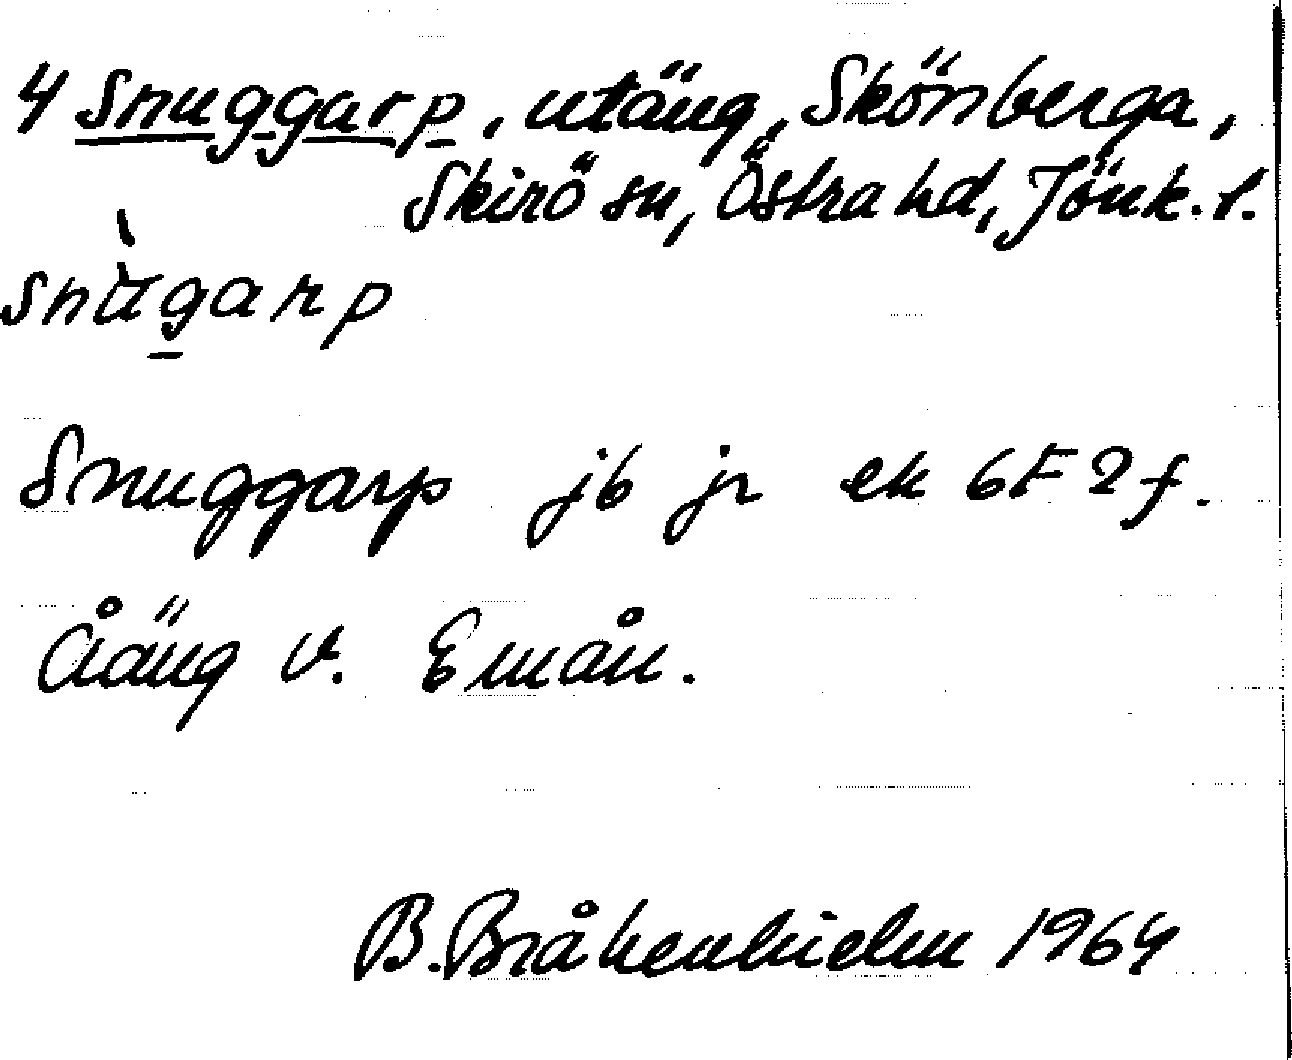 4 Snuggarp, utäng, Skönberga,
Skirö sn, Östra hd, Jönk. l.
snùgarp
Snuggarp jb jr ek 6F 2 f.
Åäng v. Emån.
B. Bråkenhielm 1964